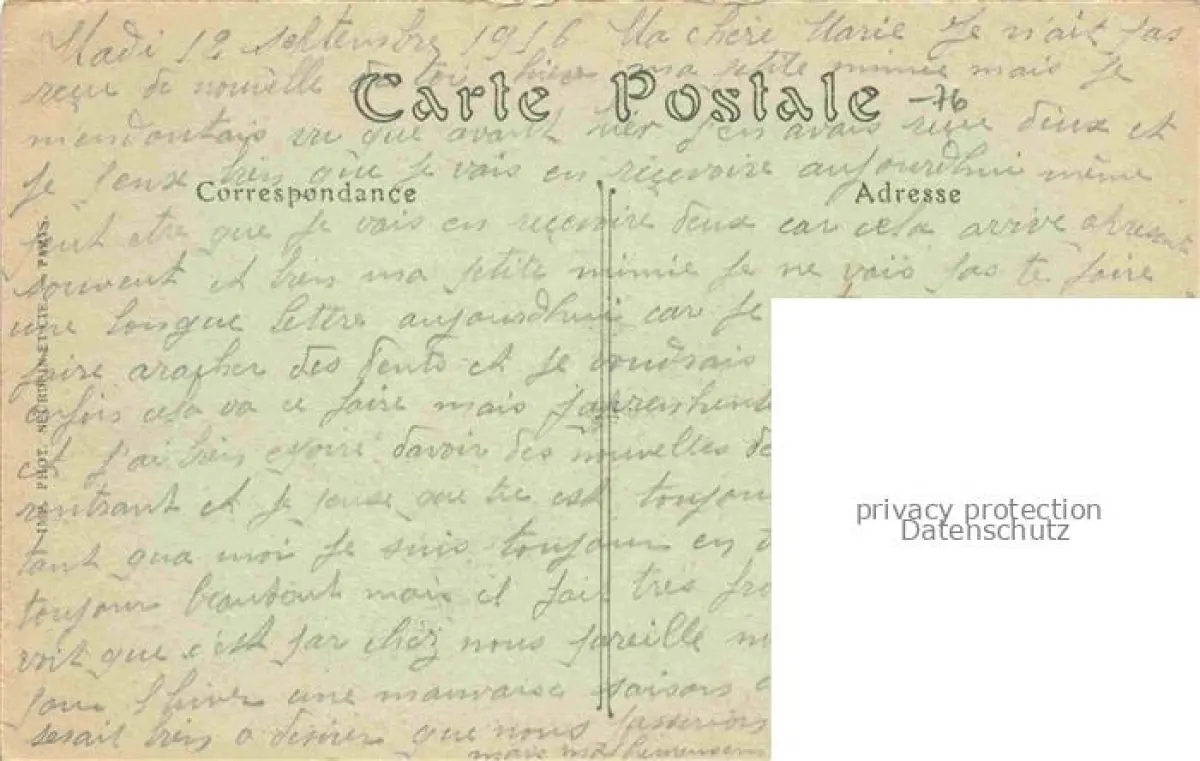 Madi 12 septembre 1916 Ma chère Marie Je n'ait pas
reçue de nouvelle de toi hier ma petite mimie mais je
Carte Postale
-76
mendoutais vu que avant hier j'en avais reçue deux et
Je pense bien que Je vais en reçevoire aujourdhui même
Correspondance
Adresse
peut etre que Je vais en reçevoire deux car cela arrive
souvent et bien ma petite mimie Je ne vais pas te faire
une longue lettre aujourdhui car Je
faire aracher des dents et Je voudrais
cela va ce faire mais
et J'ai bien davoir des nouvelles de
rentrant et Je pense que tu est toujour
tant qua moi Je suis toujour en
toujour mais il fait tres fro
voit que c'est par chez nous pareille
pour lhiver une mauvaise saison
serait bien a desirer que nous passerions
mais malheureusem
IMP. PHOT. NEURDEIN ET CIE. - PARIS.
privacy protection
Datenschutz